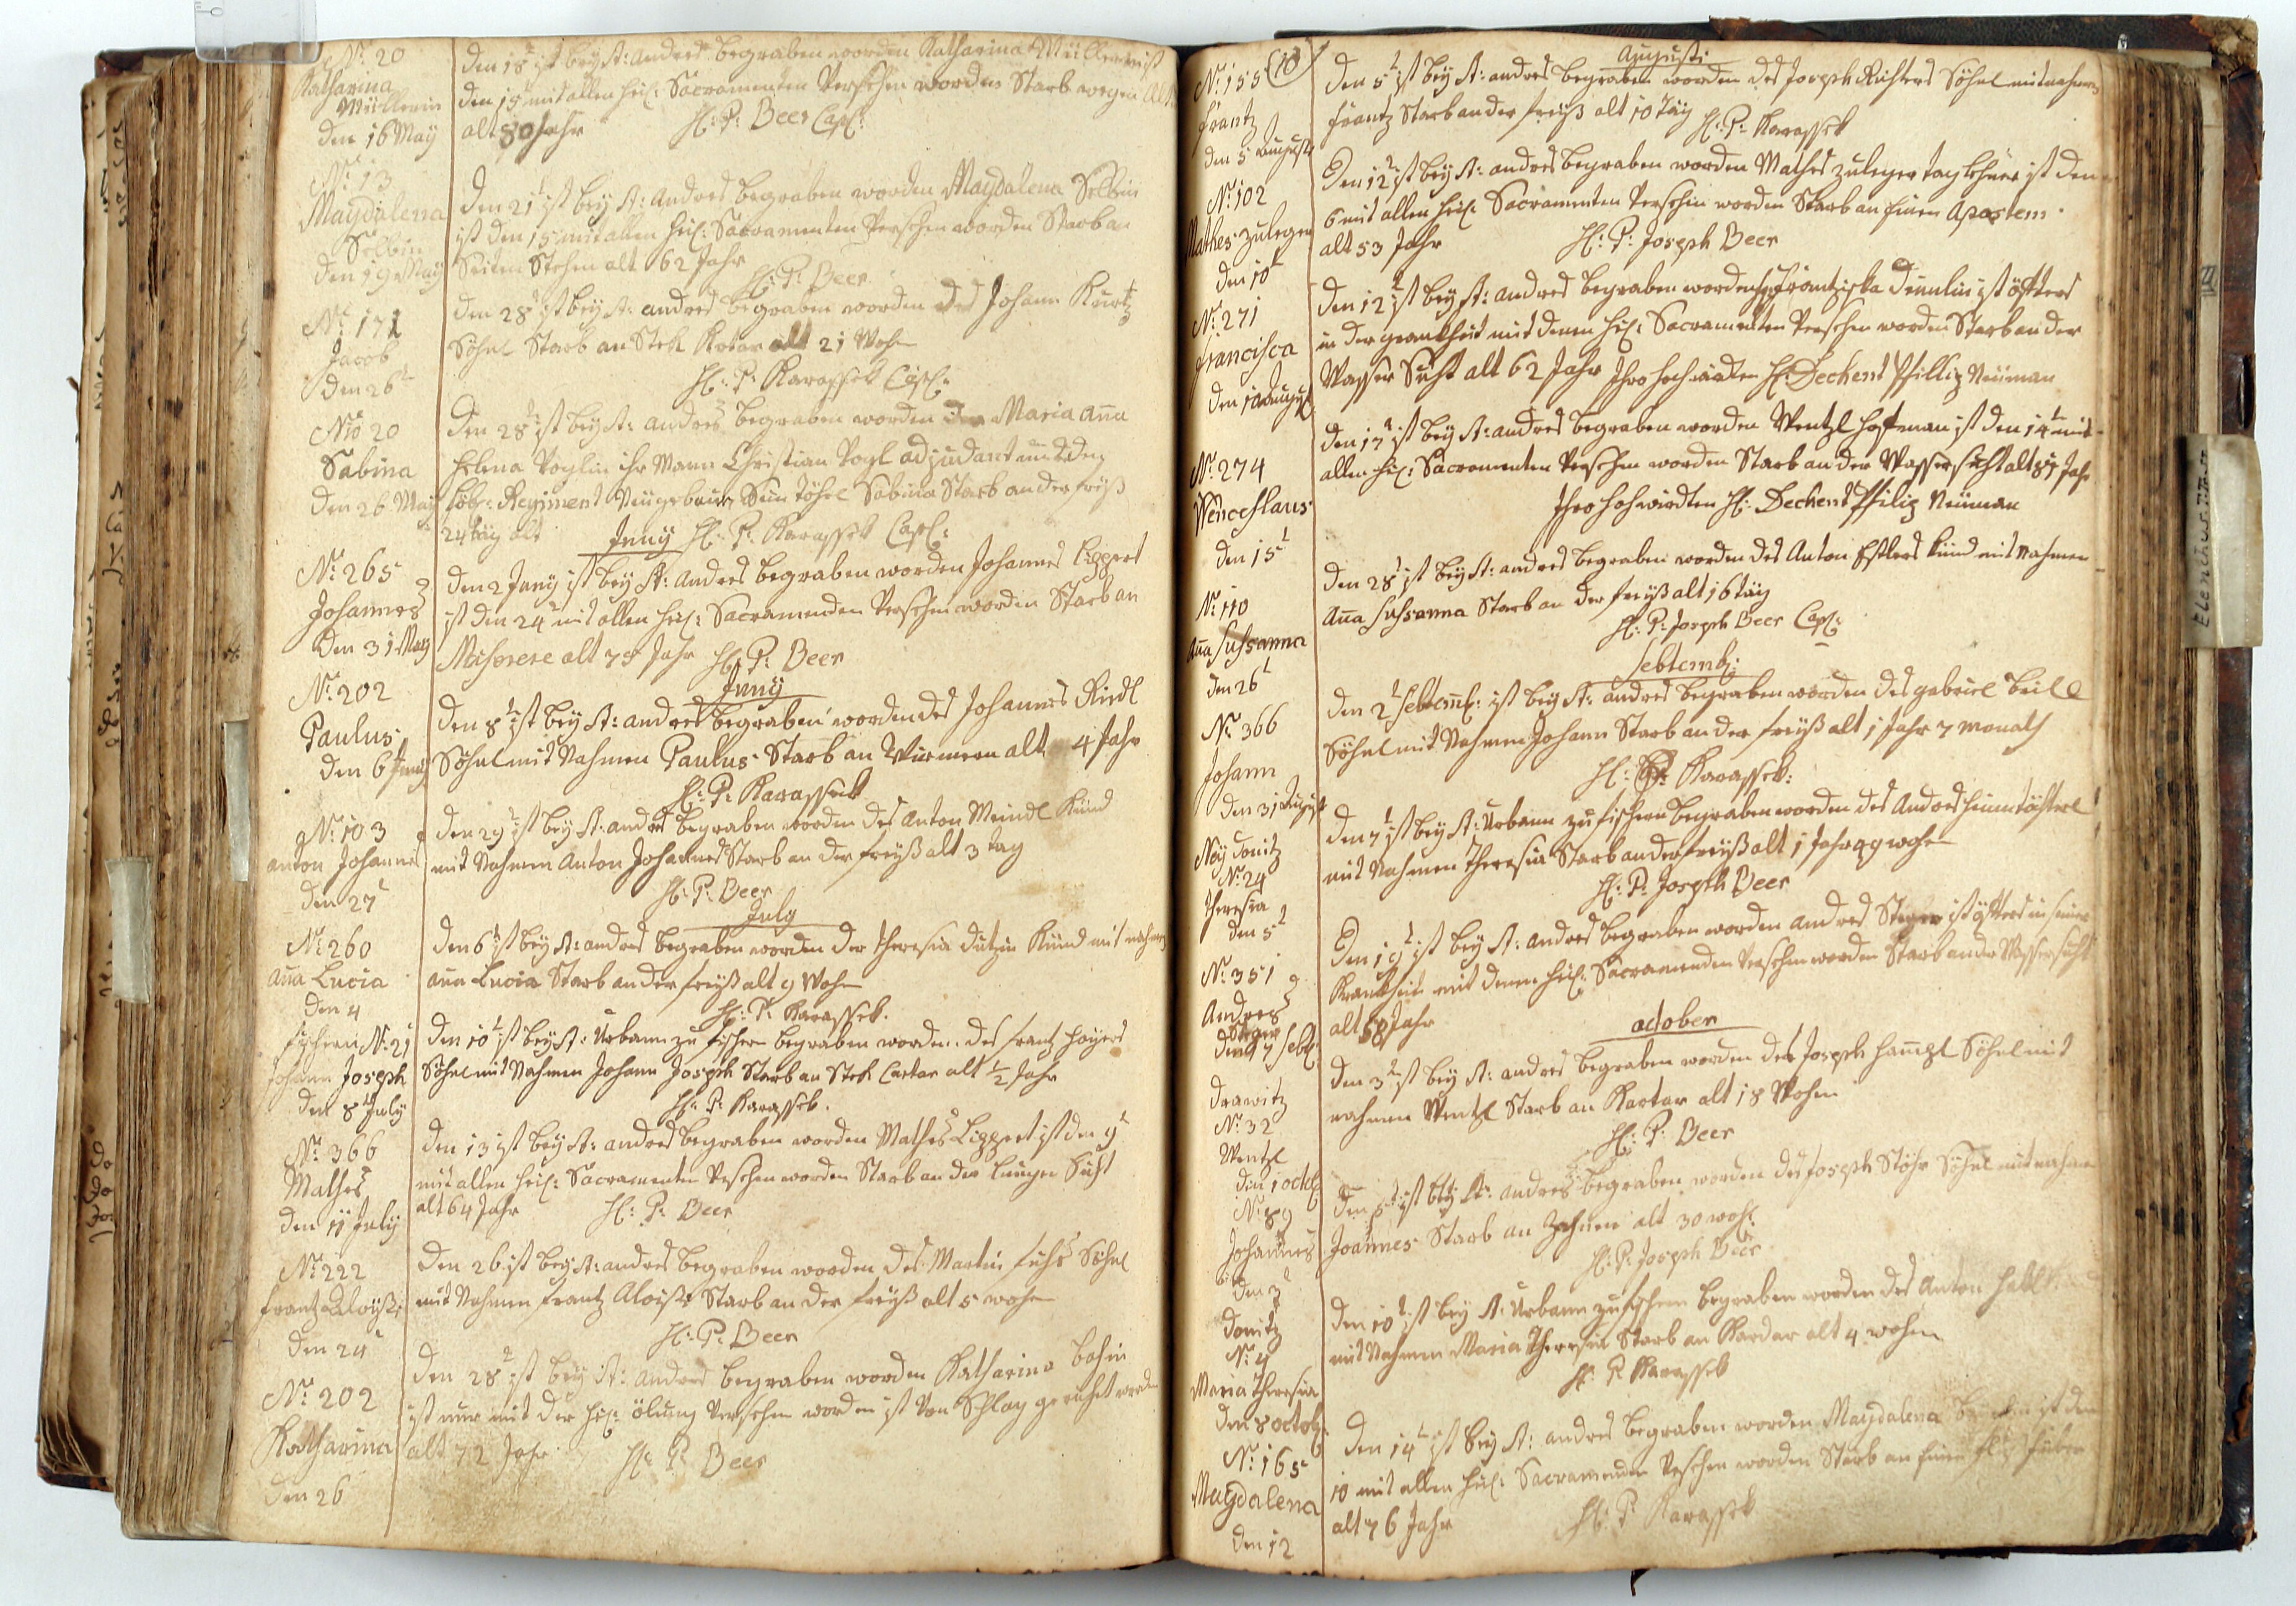 No: 20
Katharina
Müllerin
den 16 May
Den 18t ist bey St: Andres begraben worden Katharina Müllerin ist
den 15 mit allen heil: Sacramenten Versehen worden Starb wegen
alt 80 Jahr H: P: Beer Capl:
No: 13
Magdalena
Selbin
den 19 May
Den 21t ist bey St: Andres begraben worden Magdalena Selbin
ist den 15 mit allen heil: Sacramenten Versehen worden Starb an
Seiten Stechen alt 62 Jahr
H: P: Beer
No: 171
Jacob
den 26t
Den 28t ist bey St: Andres begraben worden des Johann Kurtz
Söhnl Starb an Stek Kotar alt 21 Wohn
H: P: Karassek Capl:
No 20
Sabina
den 26 May
Den 28t ist bey St: andres begraben worden Maria Ana
Helena Voglin ihr Mann Christian Vogl adjudant
löbl: Regiment Töhrl Sabina Starb an der freyß
24 täg alt
H: P: Karassek Capl:
Juny
No: 265
Johannes
den 31 May
Den 2 Juny ist bey St: Andres begraben worden Johannes Lippert
ist den 24t mit allen heil: Sacramenden Versehen worden Starb an
Miserere alt 75 Jahr H: P: Beer
Juny
No: 202
Paulus
den 6 Juny
Den 8t ist bey St: andres begraben worden des Johannes Riedl
Söhnl mit Nahmen Paulus Starb an Würmern alt 4 Jahr
H: P: Karassek
No: 103
anton Johannes
den 27t
Den 29t ist bey St: andres begraben worden des Anton Meindl Kind
mit Nahmen Anton Johannes Starb an der freyß alt 3 tag
H: P: Beer
July
No: 260
Aña Lucia
den 4
Den 6t ist bey St: andres begraben worden der Theresia Kind mit nahmen
ana Lucia Starb an der freyß alt 9 Wohn
H: P: Karassek.
fischern No: 21
Johann Joseph
den 8t July
Den 10t ist bey St: Urbann zu fischern begraben worden des frantz Hoyers
Söhnl mit Nahmen Johann Joseph Starb an Stek Cartar alt ½ Jahr
H: P: Karassek.
No: 366
Mathes
den 11 July
Den 13 ist bey St: andres begraben worden Mathes Lippert ist den 9t
mit allen heil: Sacramenten Versehen worden Starb an der Lungen Sucht
alt 64 Jahr H: P: Beer
No: 222
frantz Aloysi
den 24t
Den 26 ist bey St: andres begraben worden des Martin fuhs Söhnl
mit Nahmen frantz Aloisi Starb an der freyß alt 5 wohn
H: P: Beer
No: 202
Katharina
den 26
Den 28t ist bey St: andres begraben worden Katharina
ist nur mit der heil: ölung Versehen worden ist Von Schlag gerühet worden
alt 72 Jahr H: P: Beer
10
Augusti
No: 155
frantz
den 5 Augusti
Den 5t ist bey St: andres begraben worden des Joseph Richters Söhnl mit nahmen
frantz Starb an der freyß alt 10 Täg
H: P: Karassek
No: 102
Mathes zuleger
den 10t
Den 12t ist bey St: andres begraben worden Mathes zuleger ist den
6 mit allen heil: Sacramenten Versehen worden Starb an Apostem
alt 53 Jahr H: P: Joseph Beer
No: 271
Francisca
den 10 Augusti
Den 12t ist bey St: andres begraben worden frantziska ist öfters
in der mit denen heil: Sacramenten Versehen worden Starb an der
Wasser Sucht alt 62 Jahr Ihro Hochwürden H: Dechent Phillip Neüman
No: 274
Wenceslaus
den 15t
Den 17t ist bey St: andres begraben worden Wentzl Hofman ist den 14t mit
allen heil: Sacramenten Versehen worden Starb an der Wasser sucht alt 81 Jahr
Ihro Hohwirdten H: Dechent Philip Neüman
No: 110
Aña Sussanna
den 26t
Den 28t ist bey St: andres begraben worden des Anton Kind mit Nahmen
Aña Sussanna Starb an der freyß alt 16 täg
H: P: Joseph Beer Capl:
Sebtemb:
No: 366
Johann
den 31 August
Den 2t Sebtemb: ist bey St: andres begraben worden des gabriel
Söhnl mit Nahmen Johann Starb an der freyß alt 1 Jahr 7 Monath
H: P: Karassek:
Ney donitz
No: 24
Theresia
den 5t
Den 7t ist bey St: Urbann zu fischern begraben worden des Andres töhterl
mit Nahmen Theresia Starb an der freyß alt 1 Jahr 49 wohn
H: P: Joseph Beer
No: 351
Andres
Steger
den 17 Sebt:
Den 19t ist bey St: andres begraben worden andres Steger ist öfters in seiner
Krankheit mit denen heil: Sacramenden Versehen worden Starb an der Wassersucht
alt 58 Jahr
october
Drawitz
No: 32
Wentzl
den 1 octob
Den 3t ist bey St: andres begraben worden des Joseph Hammerl Söhnl mit
nahmen Wentzl Starb an Kartar alt 18 Wohn
H: P: Beer
No: 89
Johannes
den 3t
Den 5t ist bey St: andres begraben worden des Joseph Stöhr Söhnl mit nahmen
Joannes Starb an Zahnen alt 30 woh:
H: P: Joseph Beer
Donitz
No: 4
Maria Theresia
den 8 octob:
Den 10t ist bey St: Urbann zu fischern begraben worden des Anton
mit Nahmen Maria Theresia Starb an Kardar alt 4 wohn
H: P: Karassek
No: 165
Magdalena
den 12
Den 14t ist bey St: andres begraben worden Magdalena ist den
10 mit allen heil: Sacramenden Versehen worden Starb an
alt 76 Jahr H: P: Karassek